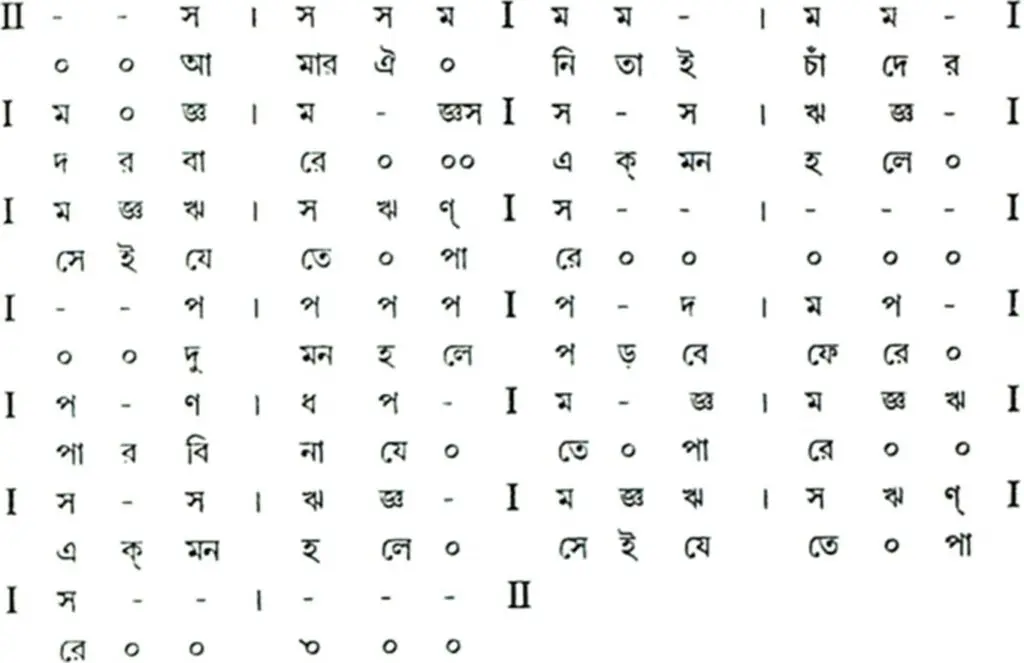 II - - স । স স ম I ম ম - । ম ম - I
০ ০ আ মার ঐ ০ নি তা ই চাঁ দে র
I ম ০ জ্ঞ । ম - জ্ঞস I স - স । ঋ জ্ঞ - I
দ র বা রে ০ ০০ এ ক্ মন হ লে ০
I ম জ্ঞ ঋ । স ঋ ণ্ I স - - । - - - I
সে ই যে তে ০ পা রে ০ ০ ০ ০ ০
I - - প । প প প I প - দ । ম প - I
০ ০ দু মন হ লে প ড় বে ফে রে ০
I প - ণ । ধ প - I ম - জ্ঞ । ম জ্ঞ ঋ I
পা র বি না যে ০ তে ০ পা রে ০ ০
I স - স । ঋ জ্ঞ - I ম জ্ঞ ঋ । স ঋ ণ্ I
এ ক্ মন হ লে ০ সে ই যে তে ০ পা
I স - - । - - - II
রে ০ ০ ০ ০ ০